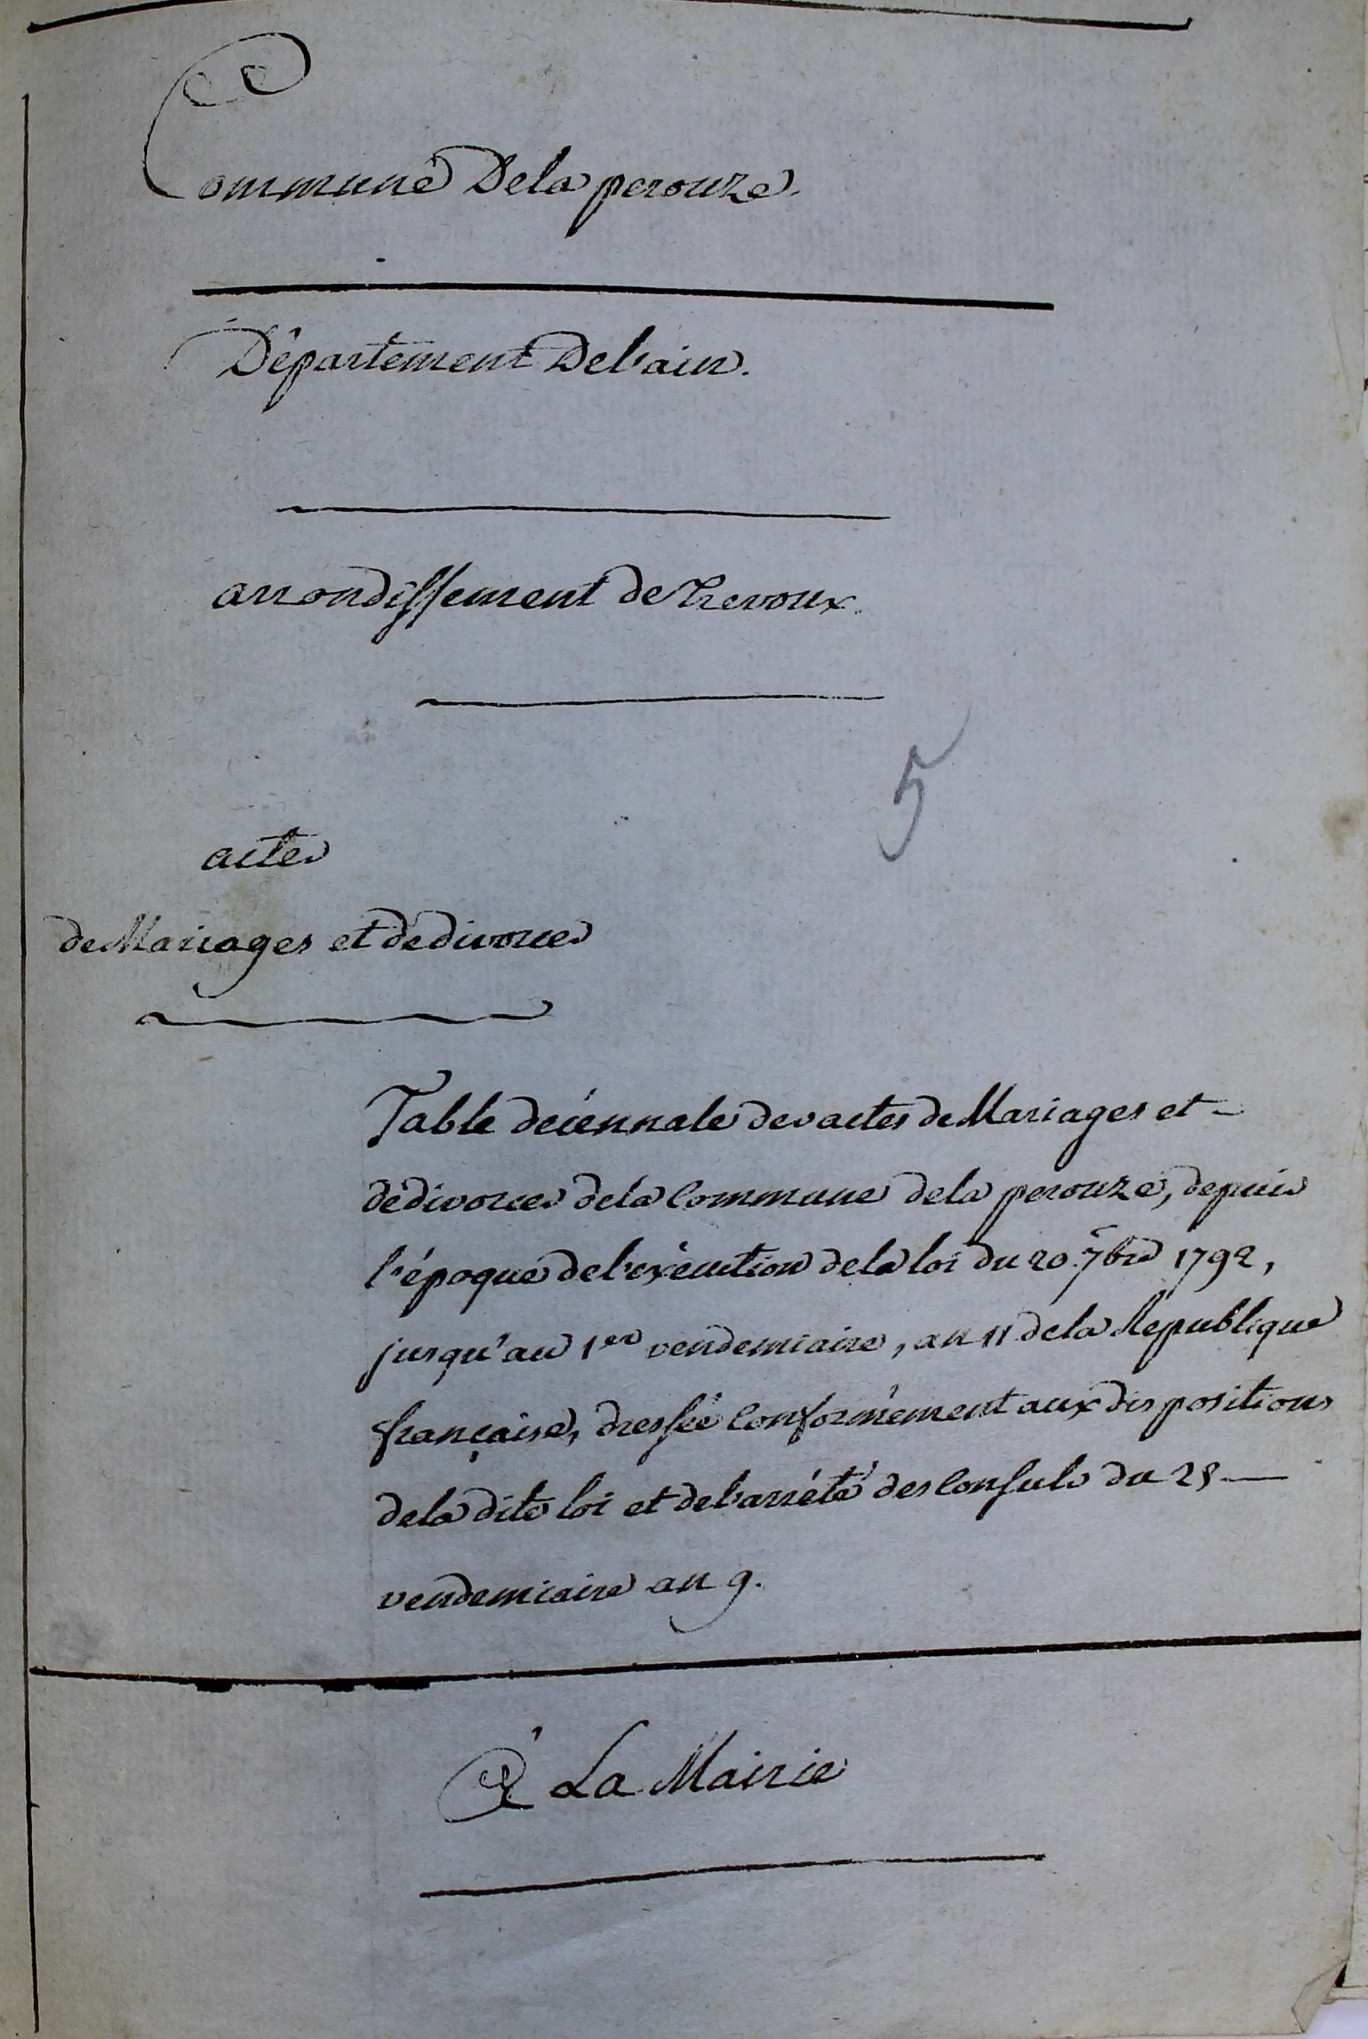 Commune Dela perouze.
Département Del'ain.
arrondissement de Trevoux.
5
actes
de Mariages et de divorces
Table décennale des actes de Mariages et -
de divorces dela Commune dela perouze, depuis
l'époque de l'exécution dela loi du 20 7bre 1792,
jusqu'au 1er vendemiaire, an 11 dela République
française, dressée Conformément aux dispositions
dela dite loi et de l'arrété des Consuls du 25 —
vendemiaire an 9.
À La Mairie